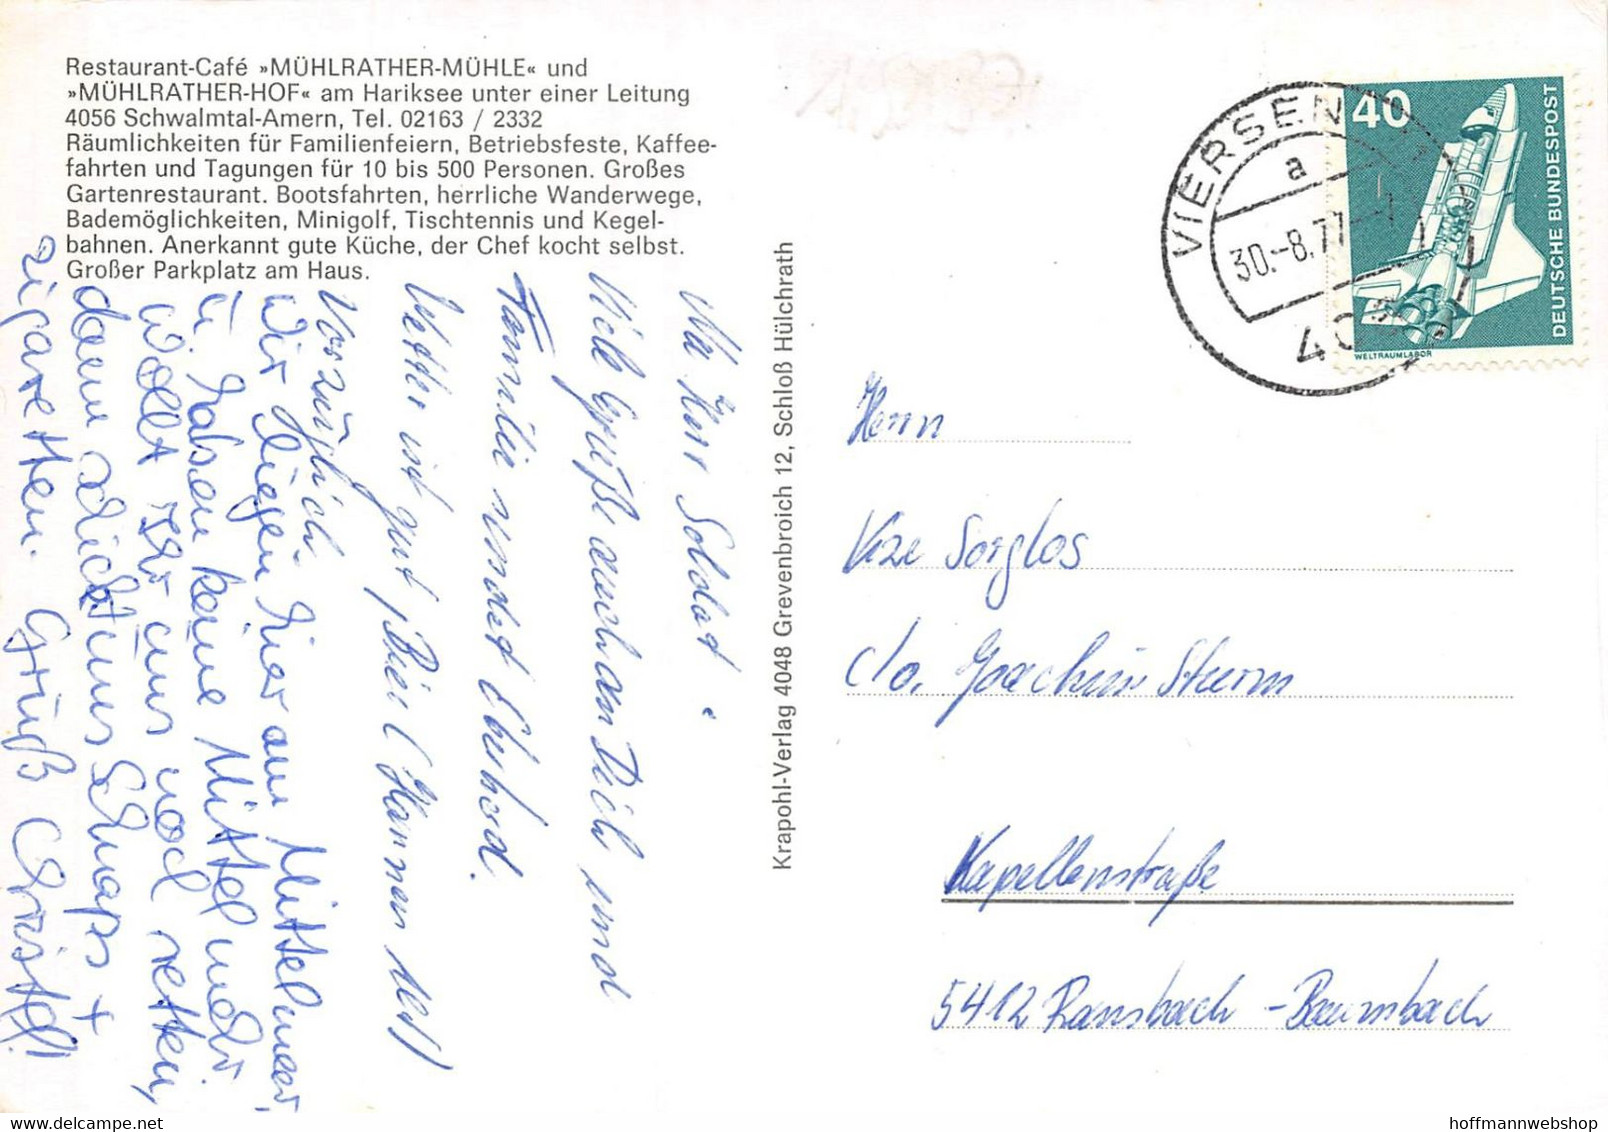 Restaurant-Café »MÜHLRATHER-MÜHLE« und
»MÜHLRATHER-HOF« am Hariksee unter einer Leitung
4056 Schwalmtal-Amern, Tel. 02163 / 2332
Räumlichkeiten für Familienfeiern, Betriebsfeste, Kaffee-
fahrten und Tagungen für 10 bis 500 Personen. Großes
Gartenrestaurant. Bootsfahrten, herrliche Wanderwege,
Bademöglichkeiten, Minigolf, Tischtennis und Kegel-
bahnen. Anerkannt gute Küche, der Chef kocht selbst.
Großer Parkplatz am Haus.
Herr Soldat!
Viele Grüße auch an Dich und
Familie sendet Eberhard.
Wetter ist gut, Bier (Hannen Alt)
Vorzüglich.
Wir liegen hier am Mittelmeer,
u. haben keine Mittel mehr
Wollt Ihr uns noch retten,
dann schickt uns Schnaps +
Zigaretten. Gruß Christel!
Krapohl-Verlag 4048 Grevenbroich 12, Schloß Hülchrath
VIERSEN 1
a
30.-8.77-
40
DEUTSCHE BUNDESPOST
WELTRAUMLABOR
Herrn
Vize Sorglos
c/o. Joachim Sturm
Kapellenstraße
5412 Ransbach-Baumbach
hoffmannwebshop